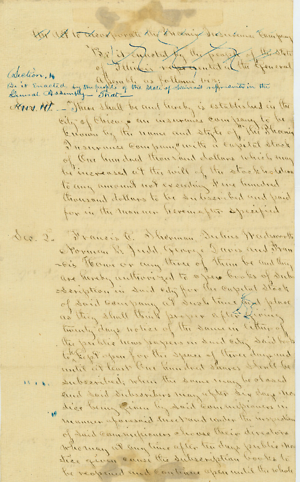 An Act to incorporate the Phoenix Insurance Company
Be it enacted by the people of the State
of Illinois represented in the General
Assembly as follows viz:
Section 1.
Be it enacted by the people of the State of Illinois represented in the
General Assembly - That
There shall be and hereby is established in the
city of Chicago an insurance company to be
known by the name and style of the Phoenix
Insurance Company with a capital stock
of One hundred thousand dollars which may
be increased at the will of the stockholders
to any amount not exceeding five hundred
thousand dollars to be subscribed and paid
for in the manner hereinafter specified
Sec. 2. Francis C. Sherman Julius Wadsworth
Norman B. Judd George and
or any three of them be and they
are hereby authorized to open books of sub-
scription in said city for the capital stock
of said company at such time & place
as they shall think proper after giving
twenty days notice of the same in of
the public newspapers in said city said books
to be kept open for the space of three days and
until at least One hundred shares shall be
subscribed, when the same may be closed
and said subscribers may after six days no-
tice being given by said commissioners in
manner aforesaid meet and under the inspection
of said commissioners choose their directors
who may at any time after ten days public no-
tice given cause the subscription books to
be reopened and continue open until the whole